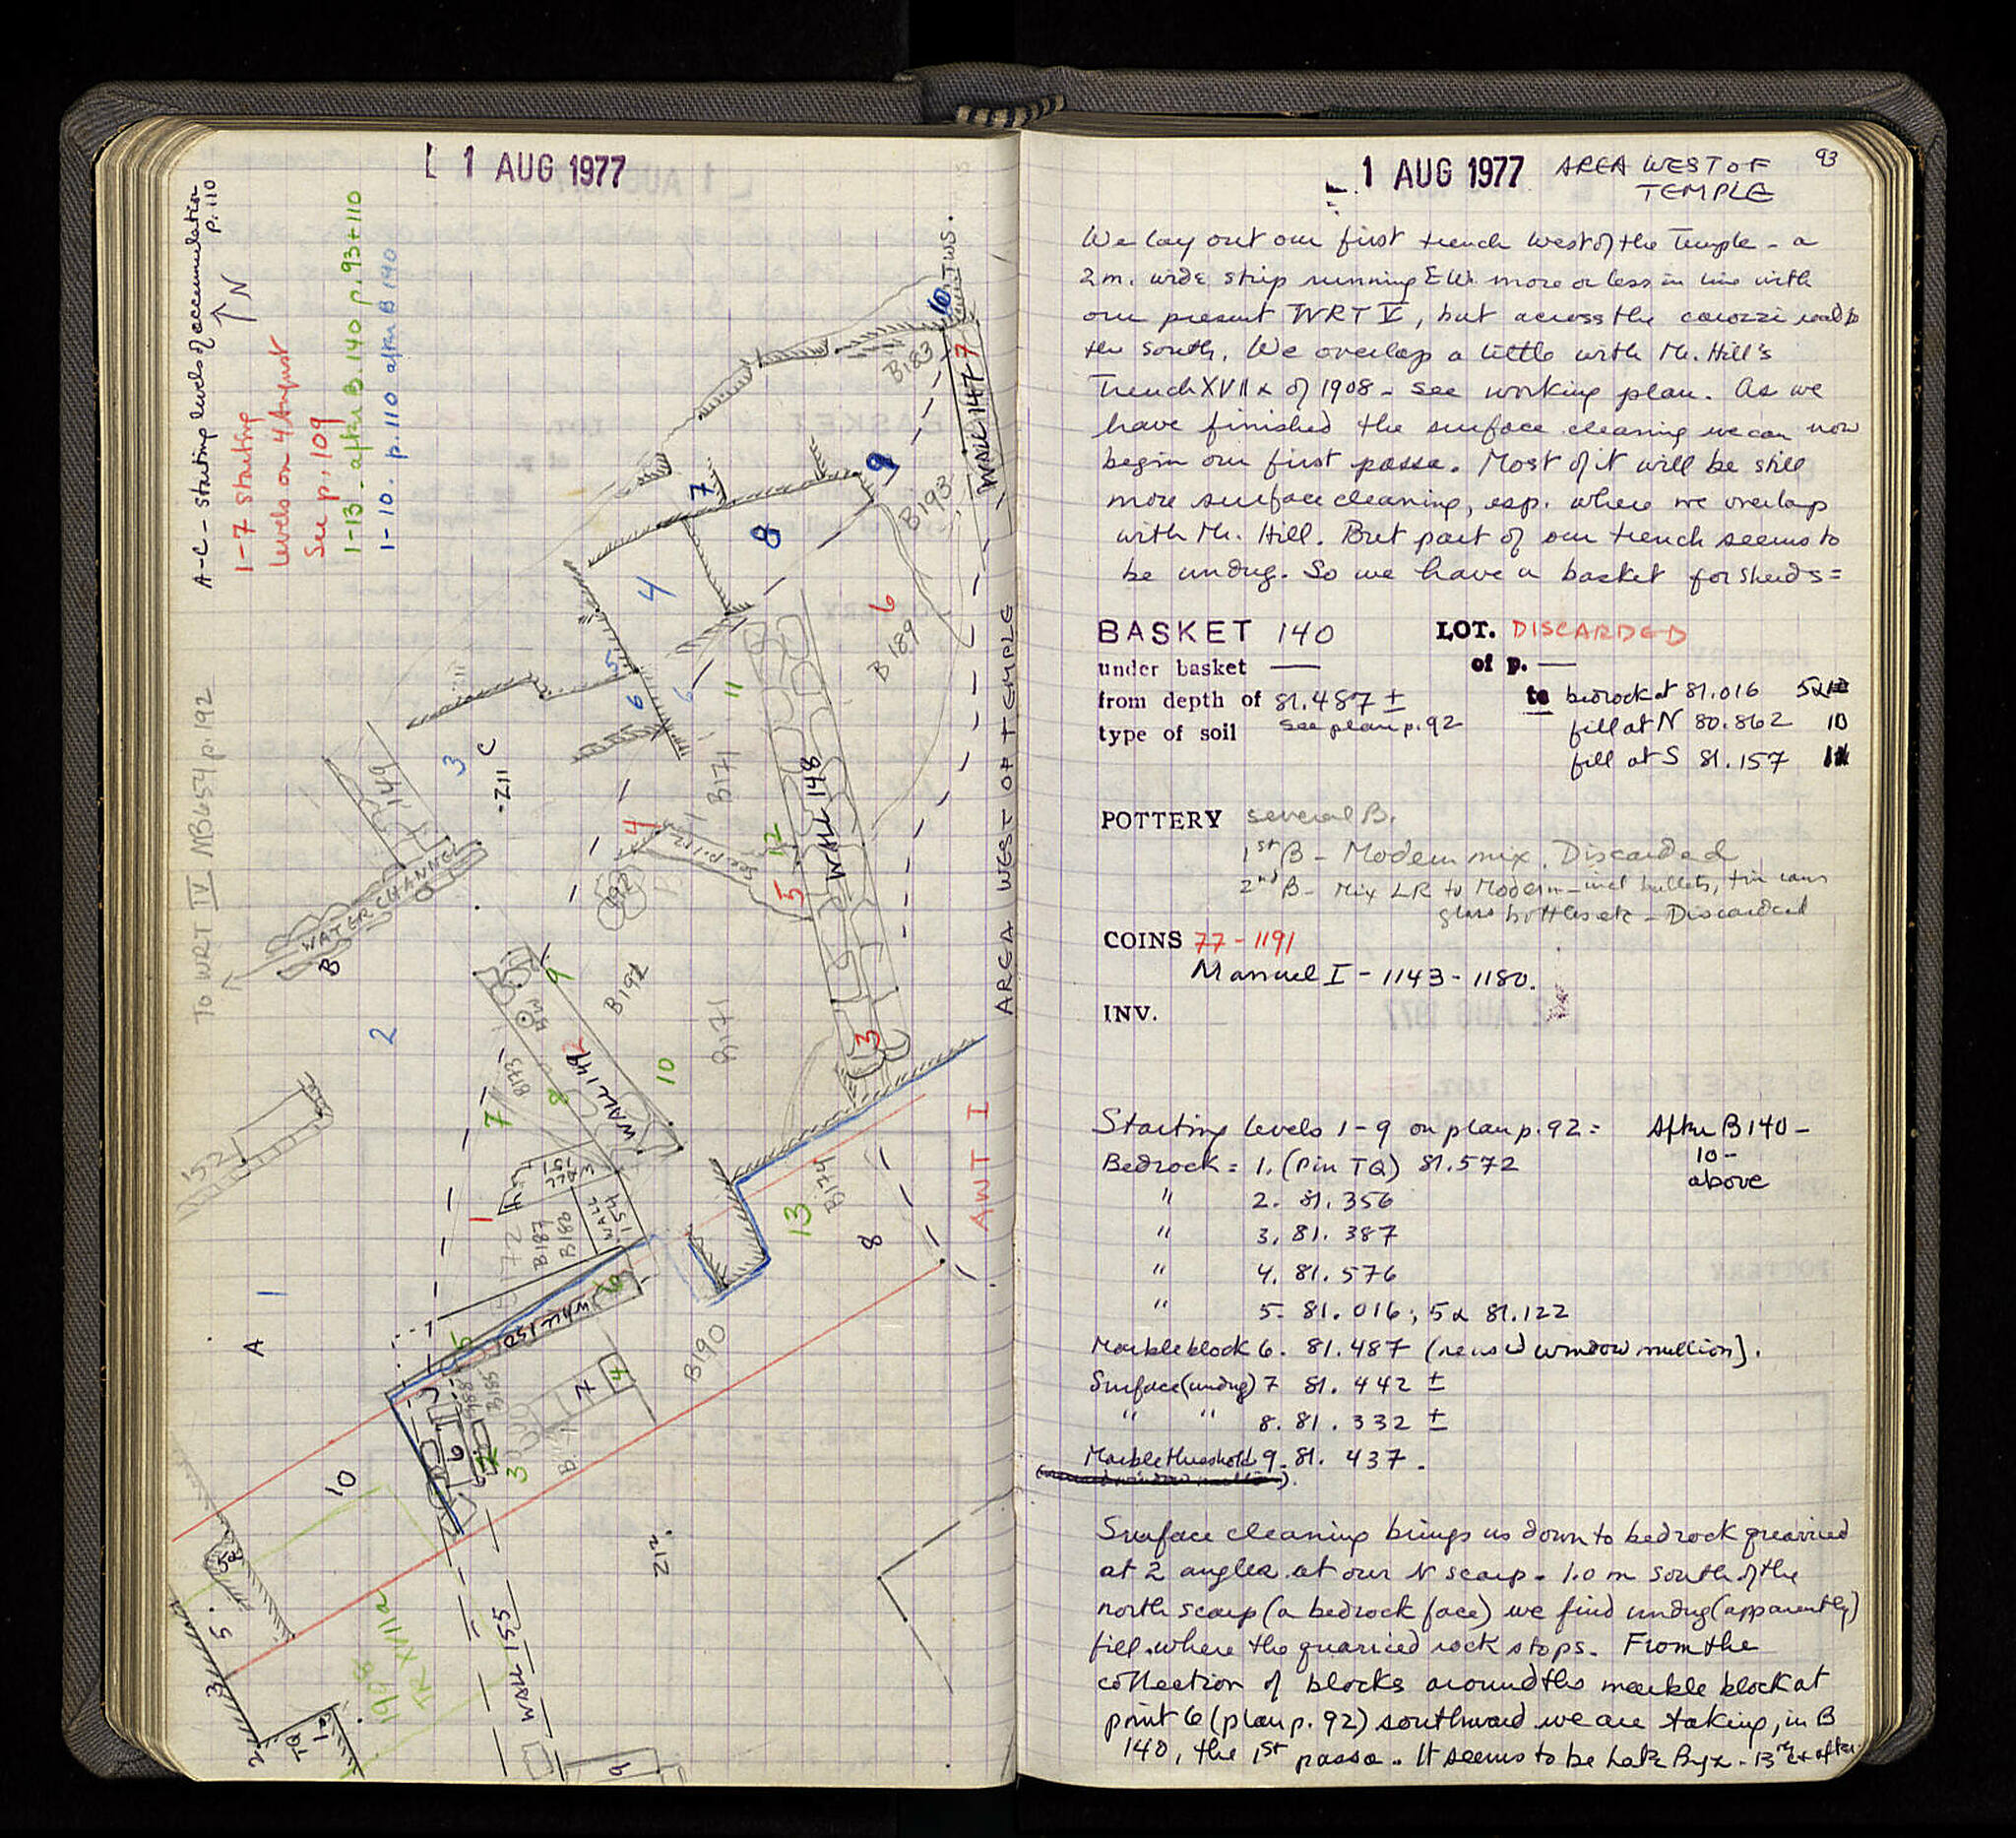 1 AUG 1977
A-C - starting levels of accumulation
p. 110
N
1-7 starting
levels on 4 August
See p. 109
1-13 - after B. 140 p. 93 + 110
1-10. p. 110 after B 190
To WRT IV NB 654 p. 192
TWS.
10
B183
WALL 147
7
9
7
B193
8
4
6
B 189
5
6
6
11
3
C
-211
149
B171
WALL 148
4
12
5
WATER CHANNEL
B
AREA WEST OF TEMPLE
2
9
B192
B171
3
B173
8
WALL 149
10
7
152
AWT I
13
B174
8
WALL
154
1
B187
B188
A
1
WALL 150
6
5
B190
N
4
B185
6
3
10
212.
5
3
1908
TR XVII α
WALL 155
2
TQ
1
9
1 AUG 1977
AREA WEST OF
TEMPLE
93
We lay out our first trench west of the Temple - a
2 m. wide strip running E W. more or less in line with
our present TWRT V, but across the carozzi road to
the south. We overlap a little with Mr. Hill's
Trench XVII α of 1908 - see working plan. As we
have finished the surface cleaning we can now
begin our first passe. Most of it will be still
more surface cleaning, esp. where we overlap
with Mr. Hill. But part of our trench seems to
be undug. So we have a basket for sherds =
BASKET 140 LOT. DISCARDED
under basket — of p. —
from depth of 81.487 ± to bedrock at 81.016
type of soil see plan p. 92 fill at N 80.862 10
fill at S 81.157 11
POTTERY several B.
1st B - Modern mix. Discarded
2nd B - Mix LR to Modern - incl bullets, tin cans
glass bottles etc - Discarded
COINS 77-1191
Manuel I - 1143-1180.
INV.
Starting levels 1-9 on plan p. 92 = After B 140 -
Bedrock = 1. (Pin TQ) 81.572 10 -
above
" 2. 81.356
" 3. 81.387
" 4. 81.576
" 5. 81.016; 5α 81.122
Marble block 6. 81.487 (reused window mullion).
Surface (undug) 7 81.442 ±
" " 8. 81.332 ±
Marble threshold 9. 81.437.
Surface cleaning brings us down to bedrock quarried
at 2 angles at our N scarp. 1.0 m south of the
north scarp (a bedrock face) we find undug (apparently)
fill where the quarried rock stops. From the
collection of blocks around the marble block at
point 6 (plan p. 92) southward we are taking, in B
140, the 1st passe. It seems to be Late Byz - 13th + after.